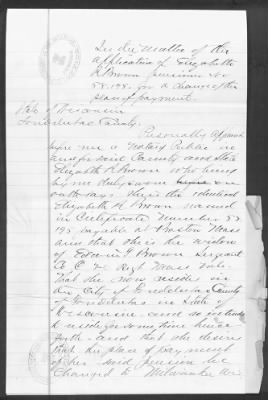 In the Matter of the
application of Elizabeth
R Brown pensioner No
58.195. for a change of the
place of payment.
State of Wisconsin
Fonddulac County.
Personally Appeared
before me a Notary Public in
and for said County and State
Elizabeth R Brown who being
by me duly sworn on
oath says she is the identical
Elizabeth R Brown named
in Certificate Number 58
195 payable at Boston Mass
and that she is the widow
of Edwin Brown Sergeant
Co C Regt Mass Vols
That she now resides in
the City of Fonddulac County
of Fonddulac in State of
Wisconsin and so intends
to reside for some time hence
forth and that she desires
that the place of payment
of her said pension be
changed to Milwaukee Wis